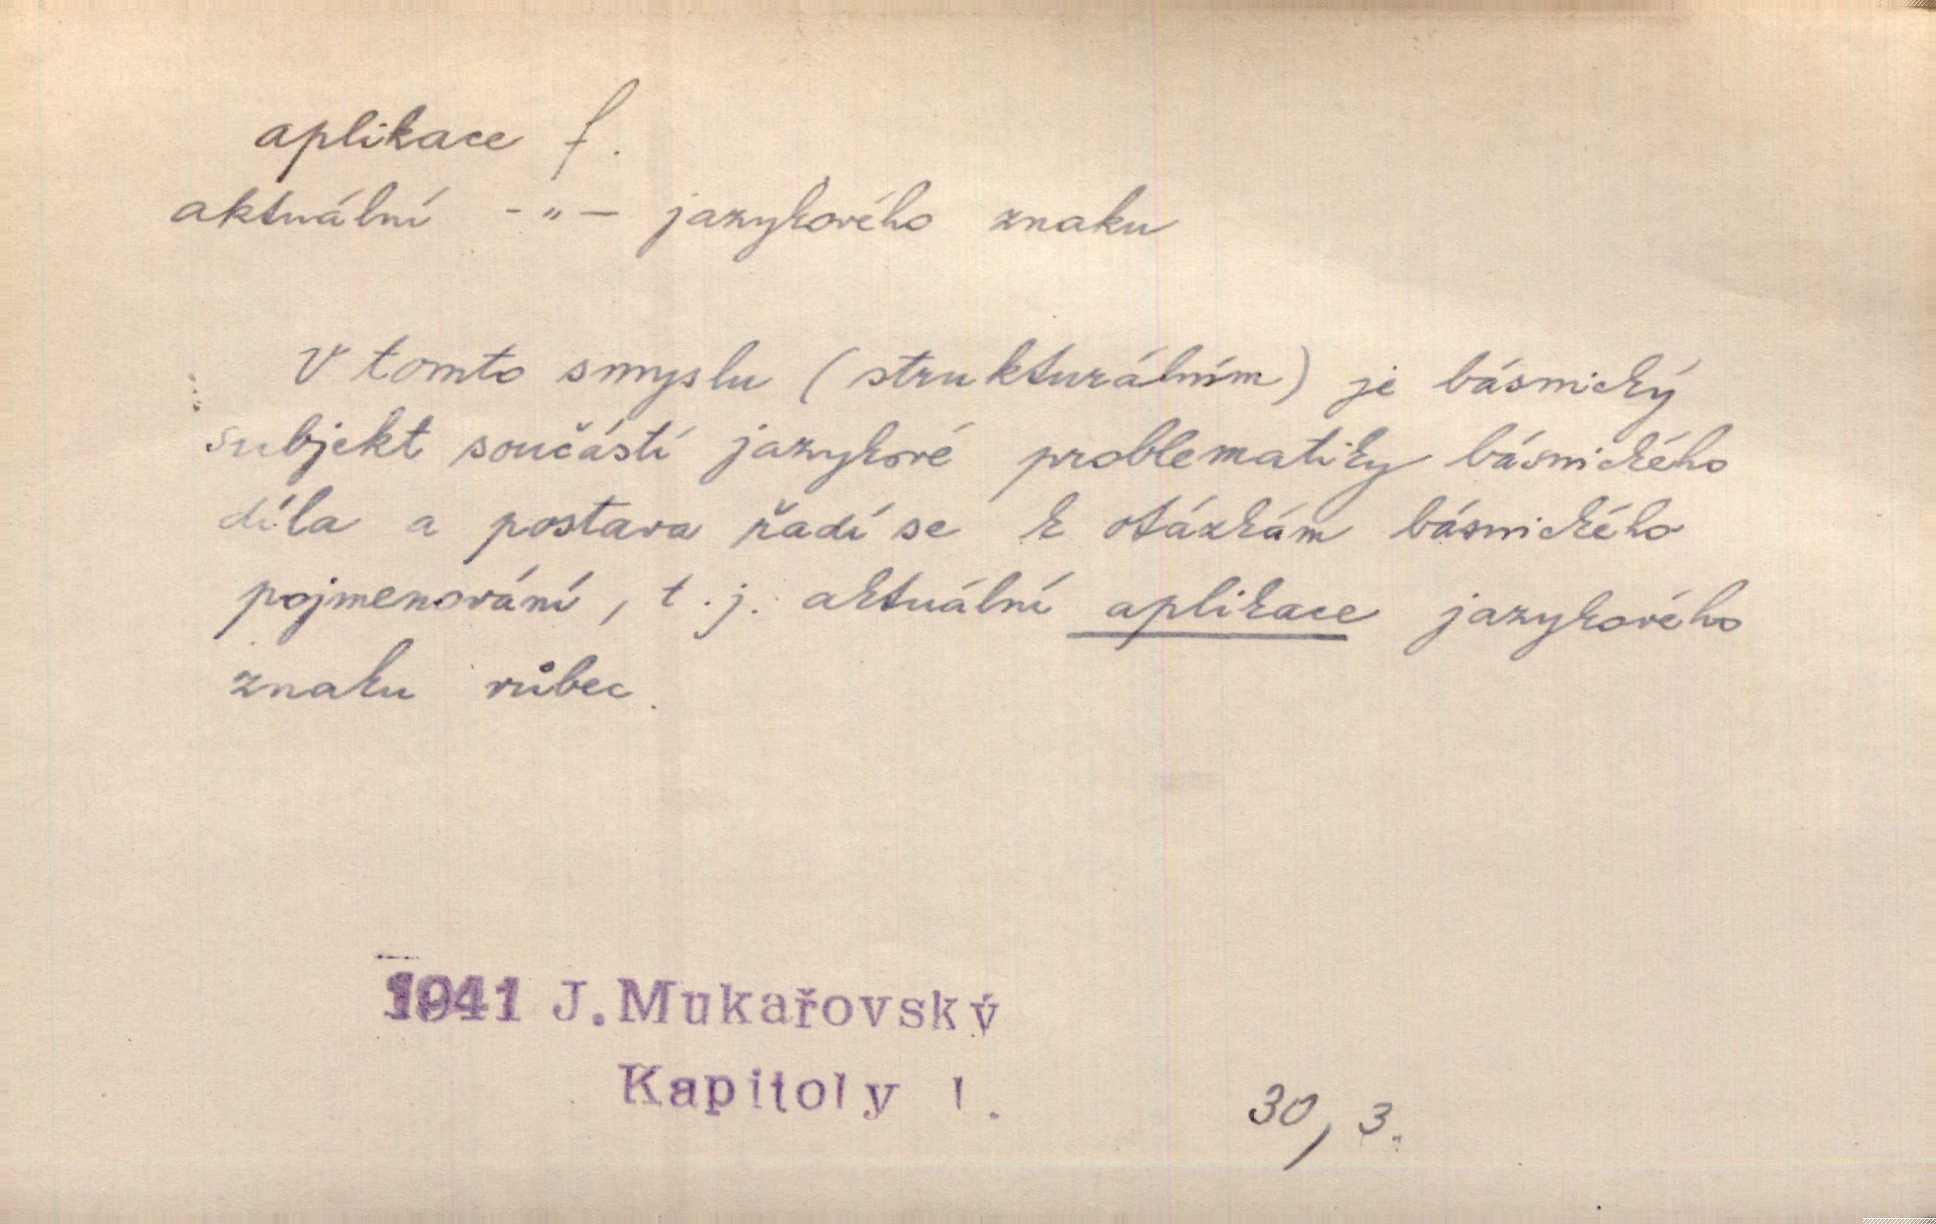 aplikace f.
aktuální -"- jazykového znaku
V tomto smyslu (strukturálním) je básnický
subjekt součástí jazykové problematiky básnického
díla a postava řadí se k otázkám básnického
pojmenování, t.j. aktuální aplikace jazykového
znaku vůbec.
1941 J. Mukařovský
Kapitoly I.
30, 3.